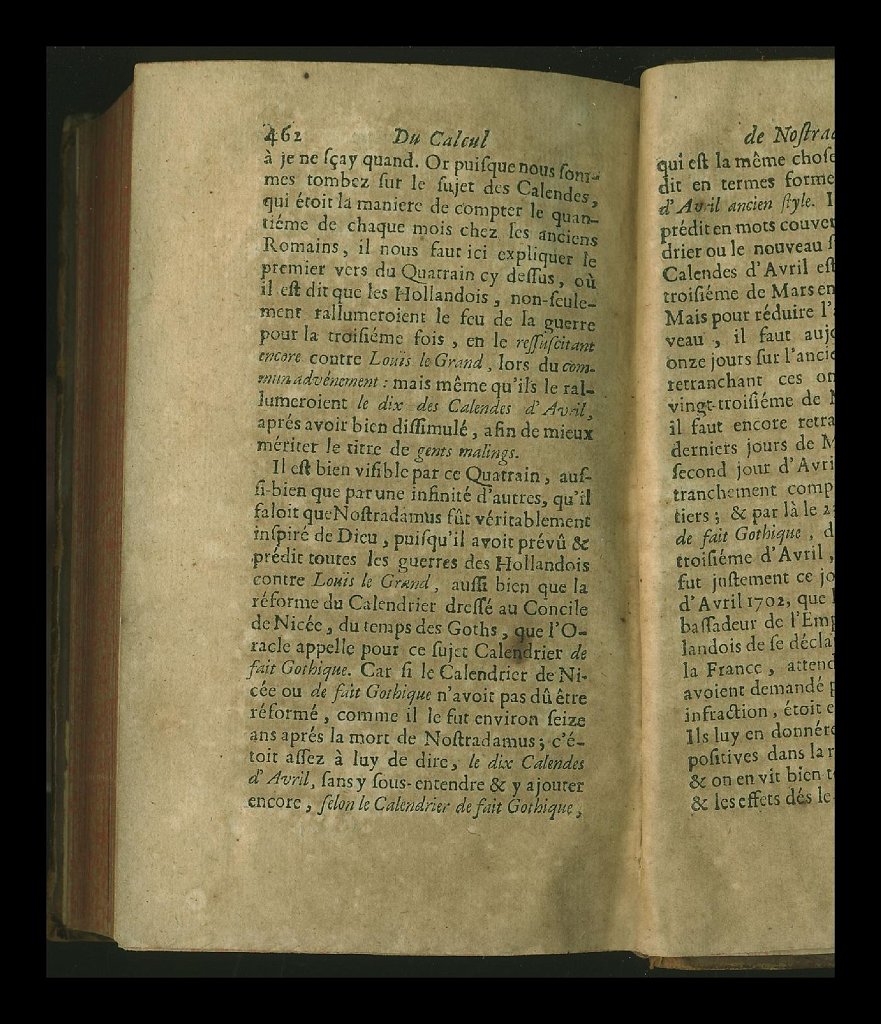 462 Du Calcul
à je ne ſçay quand. Or puiſque nous ſom-
mes tombez ſur le ſujet des Calendes,
qui étoit la maniere de compter le quan-
tiéme de chaque mois chez les anciens
Romains, il nous faut ici expliquer le
premier vers du Quatrain cy deſſus, où
il eſt dit que les Hollandois, non-ſeule-
ment rallumeroient le feu de la guerre
pour la troiſiéme fois, en le reſſuſcitant
encore contre Louïs le Grand, lors du com-
mun advénement : mais même qu'ils le ral-
lumeroient le dix des Calendes d'Avril,
aprés avoir bien diſſimulé, afin de mieux
mériter le titre de gents malings.
Il eſt bien viſible par ce Quatrain, auſ-
ſi-bien que par une infinité d'autres, qu'il
faloit que Noſtradamus fût véritablement
inſpiré de Dieu, puiſqu'il avoit prévû &
prédit toutes les guerres des Hollandois
contre Louïs le Grand, auſſi bien que la
réforme du Calendrier dreſſé au Concile
de Nicée, du temps des Goths, que l'O-
racle appelle pour ce ſujet Calendrier de
fait Gothique. Car ſi le Calendrier de Ni-
cée ou de fait Gothique n'avoit pas dû être
réformé, comme il le fut environ ſeize
ans aprés la mort de Noſtradamus; c'é-
toit aſſez à luy de dire, le dix Calendes
d'Avril, ſans y ſous-entendre & y ajouter
encore, ſelon le Calendrier de fait Gothique,
de Noſtrad
qui eſt la même choſe
dit en termes forme
d'Avril ancien ſtyle.
prédit en mots couver
drier ou le nouveau ſ
Calendes d'Avril eſt
troiſiéme de Mars en
Mais pour réduire l'
veau, il faut aujo
onze jours ſur l'ancie
retranchant ces on
vingt-troiſiéme de
il faut encore retra
derniers jours de M
ſecond jour d'Avri
tranchement comp
tiers; & par là le 2
de fait Gothique, d
troiſiéme d'Avril,
fut juſtement ce jo
d'Avril 1702, que
baſſadeur de l'Emp
landois de ſe décla
la France, attend
avoient demandé p
infraction, étoit e
Ils luy en donnére
poſitives dans la r
& on en vit bien t
& les effets dés le